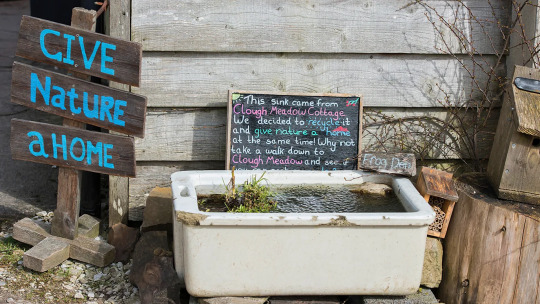 GIVE
NATURE
a HOME
This sink came from
Clough Meadow Cottage.
We decided to recycle it
and give nature a home
at the same time! Why not
take a walk down to
Clough Meadow and see if